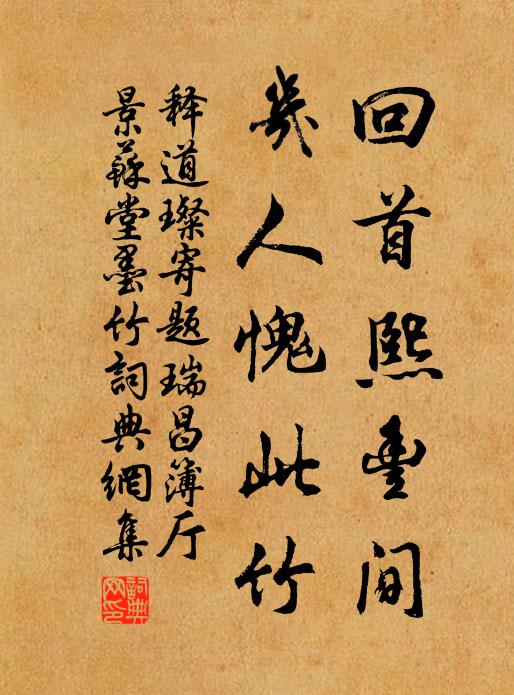 回首熙豐間
幾人愧此竹
释道璨寄题瑞昌簿厅
景蘇堂墨竹詞典網集
詞典
网印